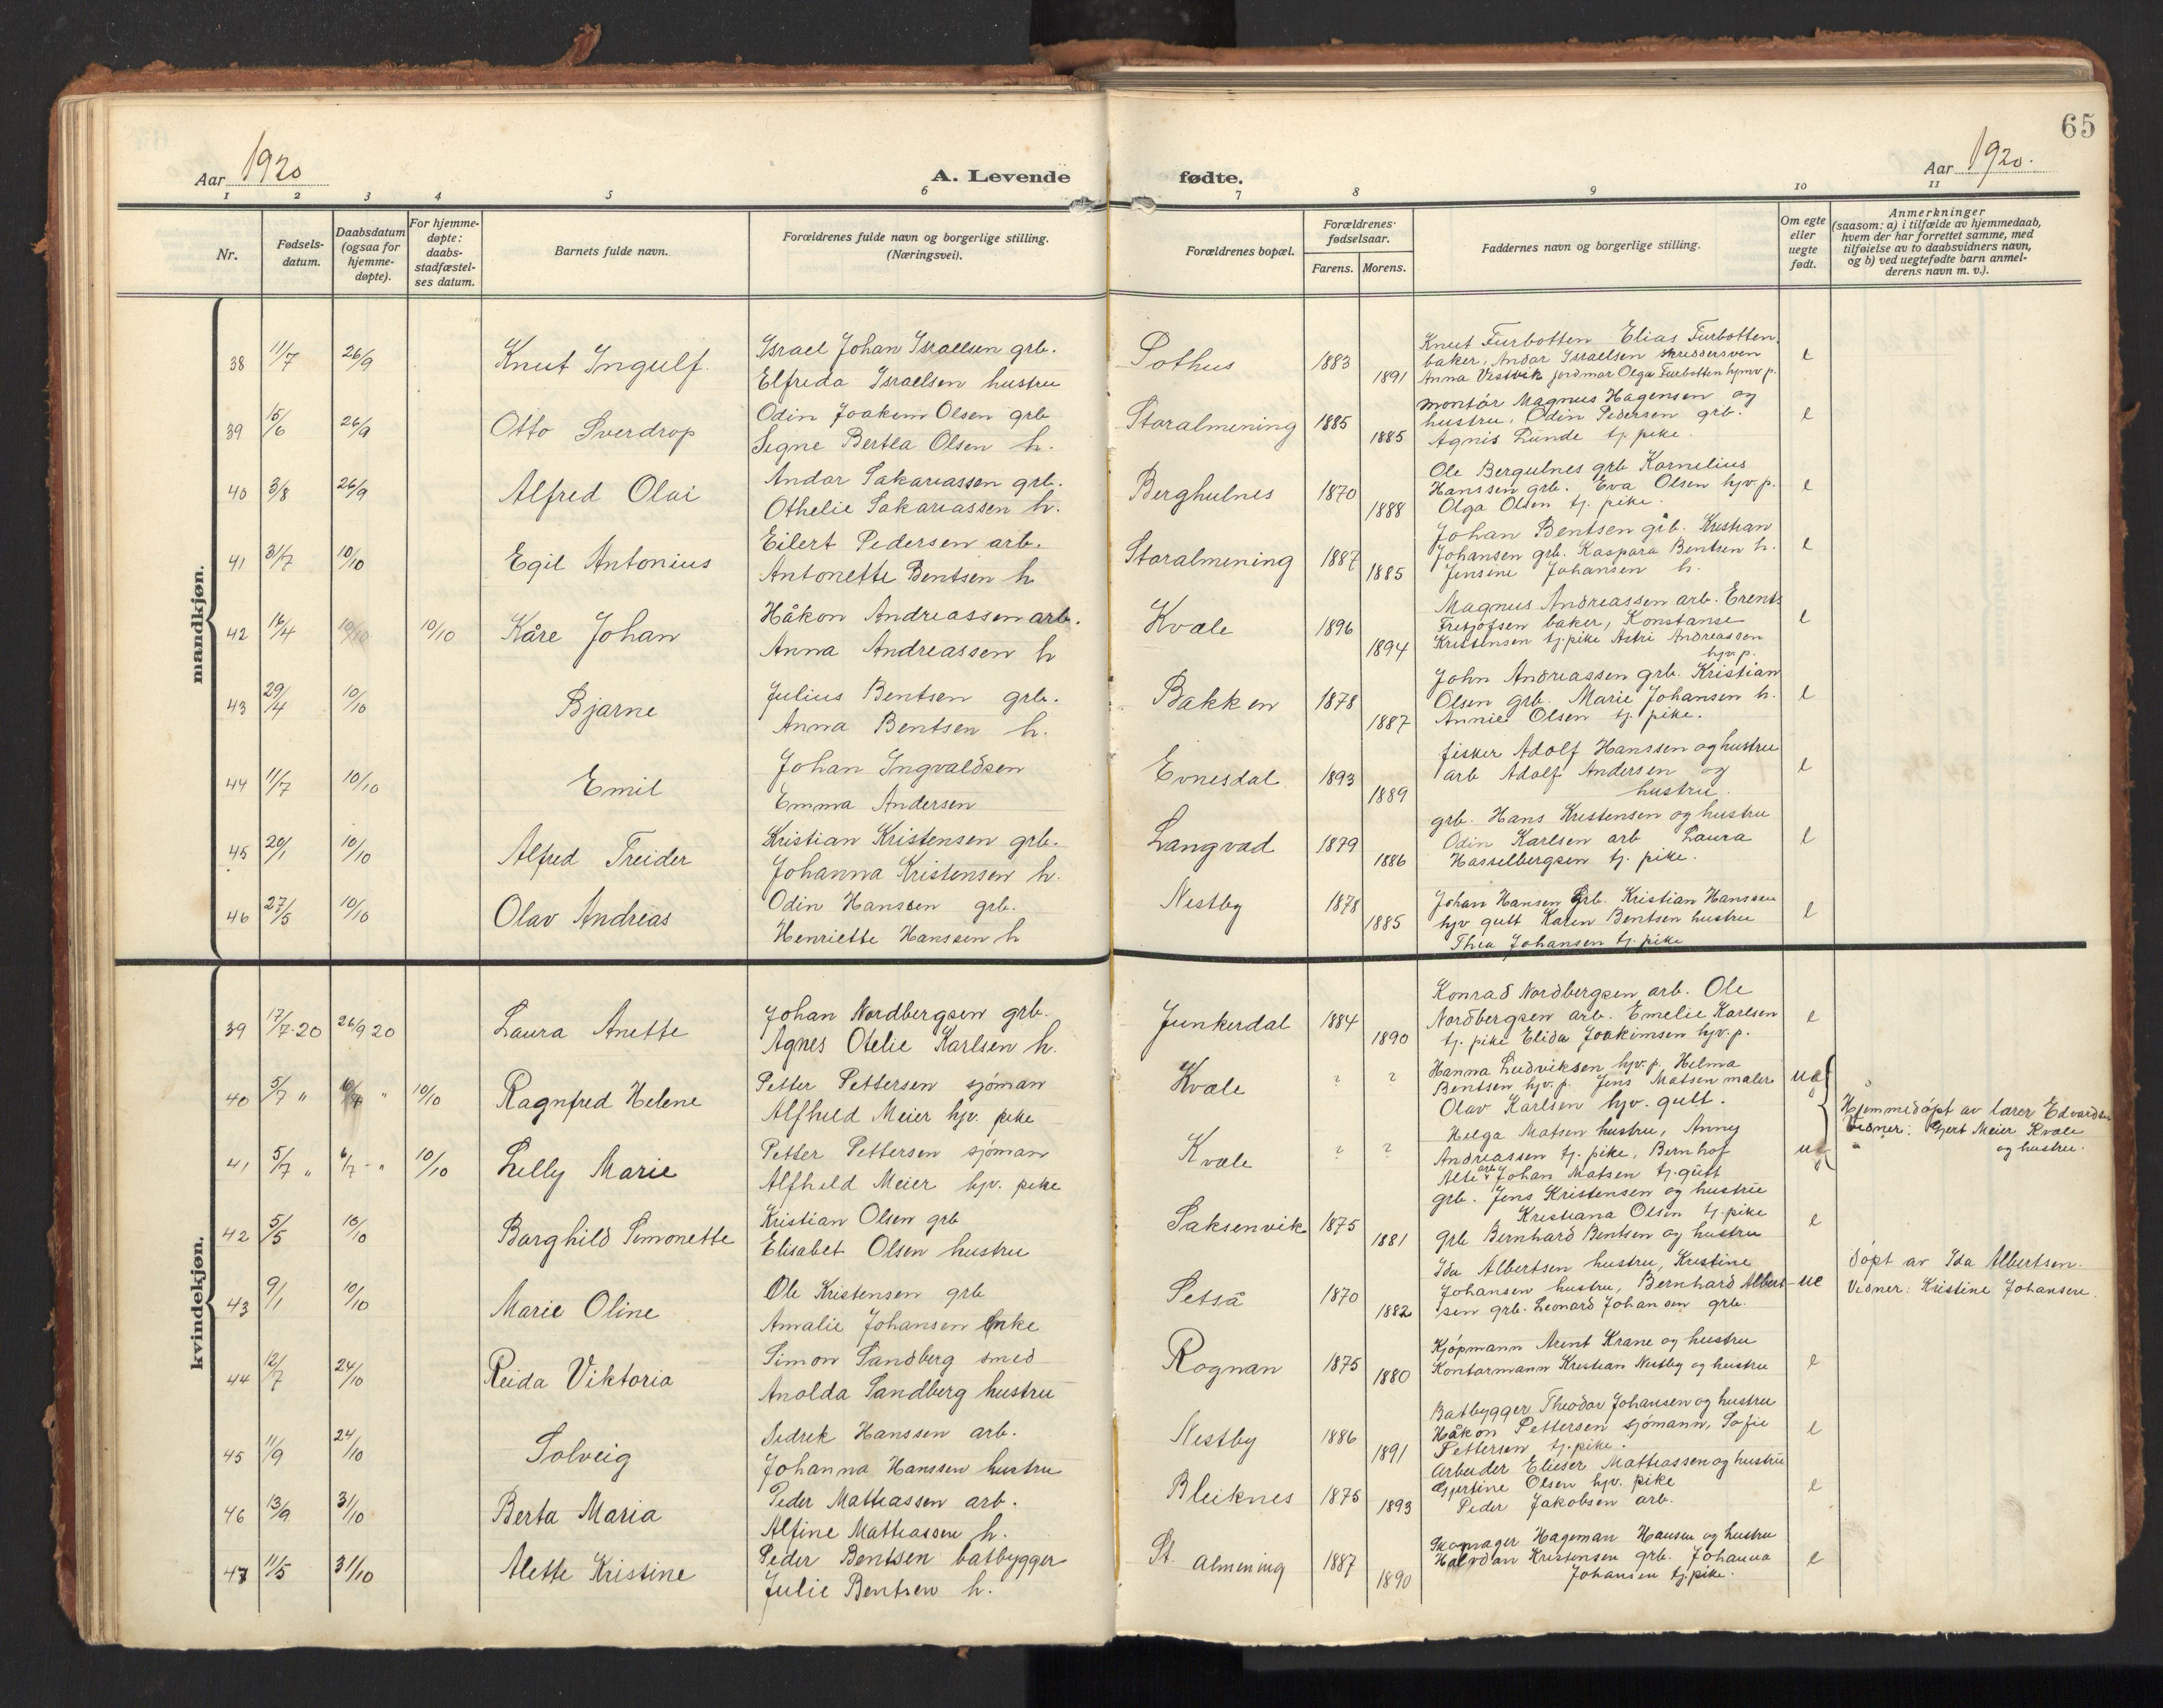 65
Aar 1920
A. Levende fødte.
Aar 1920.
1 2 3 4 5 6 7 8 9 10 11
Nr.
Fødsels-
datum.
Daabsdatum
(ogsaa for
hjemme-
døpte).
For hjemme-
døpte:
daabs-
stadfæstel-
ses datum.
Barnets fulde navn.
Forældrenes fulde navn og borgerlige stilling.
(Næringsvei).
Forældrenes bopæl.
Forældrenes
fødselsaar.
Farens. Morens.
Faddernes navn og borgerlige stilling.
Om egte
eller
uegte
født.
Anmerkninger
(saasom: a) i tilfælde av hjemmedaab,
hvem der har forrettet samme, med
tilføielse av to daabsvidners navn,
og b) ved uegtefødte barn anmel-
derens navn m. v.).
mandkjøn.
38 11/7 26/9 Knut Ingulf.
Israel Johan Israelsen grb.
Elfreda Israelsen hustru
Sothus 1883 1891
Knut Furbotten Elias Furbotten
baker, Andor Israelsen skreddersven
Anna Vestvik jordmor Olga Furbotten hjmv p.
e
39 15/6 26/9 Otto Sverdrop
Odin Joakim Olsen grb
Signe Bertea Olsen h.
Storalmening 1885 1885
montör Magnus Hagensen og
hustru, Odin Pedersen grb.
Agnis Lunde tj. pike.
e
40 3/8 26/9 Alfred Olai
Andor Sakariassen grb.
Othelie Sakariassen h.
Berghulnes 1870 1888
Ole Bergulnes grb Kornelius
Hanssen grb. Eva Olsen hjv. p.
Olga Olsen tj. pike.
e
41 31/7 10/10 Egil Antonius
Eilert Pedersen arb.
Antonette Bentsen h
Storalmening 1887 1885
Johan Bentsen grb. Kristian
Johansen grb. Kaspara Bentsen h.
Jensine Johansen h.
e
42 16/4 10/10 10/10 Kåre Johan
Håkon Andreassen arb.
Anna Andreassen h
Kvæle 1896 1894
Magnus Andreassen arb. Erents
Fretjofsen baker, Konstanse
Kristensen tj. pike Astri Andreassen
hjv. p.
e
43 29/4 10/10 Bjarne
Julius Bentsen grb.
Anna Bentsen h.
Bakken 1878 1887
John Andreassen grb. Kristian
Olsen grb. Marie Johansen h.
Annie Olsen tj. pike.
e
44 11/7 10/10 Emil
Johan Ingvaldsen
Emma Andersen
Evnesdal 1893 1889
fisker Adolf Hanssen og hustru
arb Adolf Andersen og
hustru.
e
45 20/1 10/10 Alfred Treider
Kristian Kristensen grb.
Johanna Kristensen h.
Langvad 1879 1886
grb. Hans Kristensen og hustru
Odin Karlsen arb Laura
Hasselbergsen tj. pike.
e
46 27/5 10/10 Olav Andreas
Odin Hanssen grb.
Henriette Hanssen h
Nestby 1878 1885
Johan Hansen Grb. Kristian Hanssen
hjv gutt Karen Bentsen hustru
Thea Johansen tj. pike
e
kvindekjøn.
39 17/7-20 26/9 20 Laura Anette
Johan Nordbergsen grb.
Agnes Otelie Karlsen h.
Junkerdal 1884 1890
Konrad Nordbergsen arb. Ole
Nordbergsen arb. Emelie Karlsen
tj. pike Elida Joakimsen hjv. p.
e
40 5/7 " " 10/10 Ragnfred Helene
Petter Pettersen sjöman
Alfhild Meier hjv. pike
Kvæle ? ?
Hanna Ludviksen hjv. p. Helma
Bentsen hjv. p. Jens Matsen maler
Olav Karlsen hjv. gutt.
ue
Hjemmedöpt av lærer Edvardsen
Vidner: Gjert Meier Kvæle
og hustru.
41 5/7 " 6/7 - " 10/10 Lelly Marie
Petter Pettersen sjöman
Alfhild Meier hjv. pike
Kvæle ? ?
Helga Matsen hustru, Anny
Andreassen tj. pike, Bernhof
Alte arb. Johan Matsen tj. gutt
42 5/5 10/10 Borghild Simonette
Kristian Olsen grb
Elisabet Olsen hustru
Saksenvik 1875 1881
grb. Jens Kristensen og hustru
Kristiana Olsen tj. pike
grb Bernhard Bentsen og hustru
e
43 9/1 10/10 Marie Oline
Ole Kristensen grb
Amalie Johansen Enke
Setså 1870 1882
Ida Albertsen hustru, Kristine
Johansen hustru, Bernhard Albert-
sen grb. Leonard Johansen grb.
ue
döpt av Ida Albertsen.
Vidner: Kristine Johansen.
44 12/7 24/10 Reida Viktoria
Simon Sandberg smed
Anolda Sandberg hustru
Rognan 1875 1880
Kjöpmann Arent Krane og hustru
Kontormann Kristian Nestby og hustru
e
45 11/9 24/10 Solveig
Didrek Hanssen arb.
Johanna Hanssen hustru
Nestby 1886 1891
Batbygger Theodor Johansen og hustru
Håkon Pettersen sjömann, Sofie
Pettersen tj. pike.
e
46 13/9 31/10 Berta Maria
Peder Mathiassen arb.
Alfine Mathiassen h.
Bleiknes 1875 1893
Arbeider Elieser Mathiassen og hustru
Gjertine Olsen hjv. pike
Peder Jakobsen arb.
e
47 11/5 31/10 Alette Kristine
Peder Bentsen batbygger
Julie Bentsen h.
St. almening 1887 1890
Skomager Hageman Hansen og hustru
Halvdan Kristensen grb. Johanna
Johansen tj. pike.
e